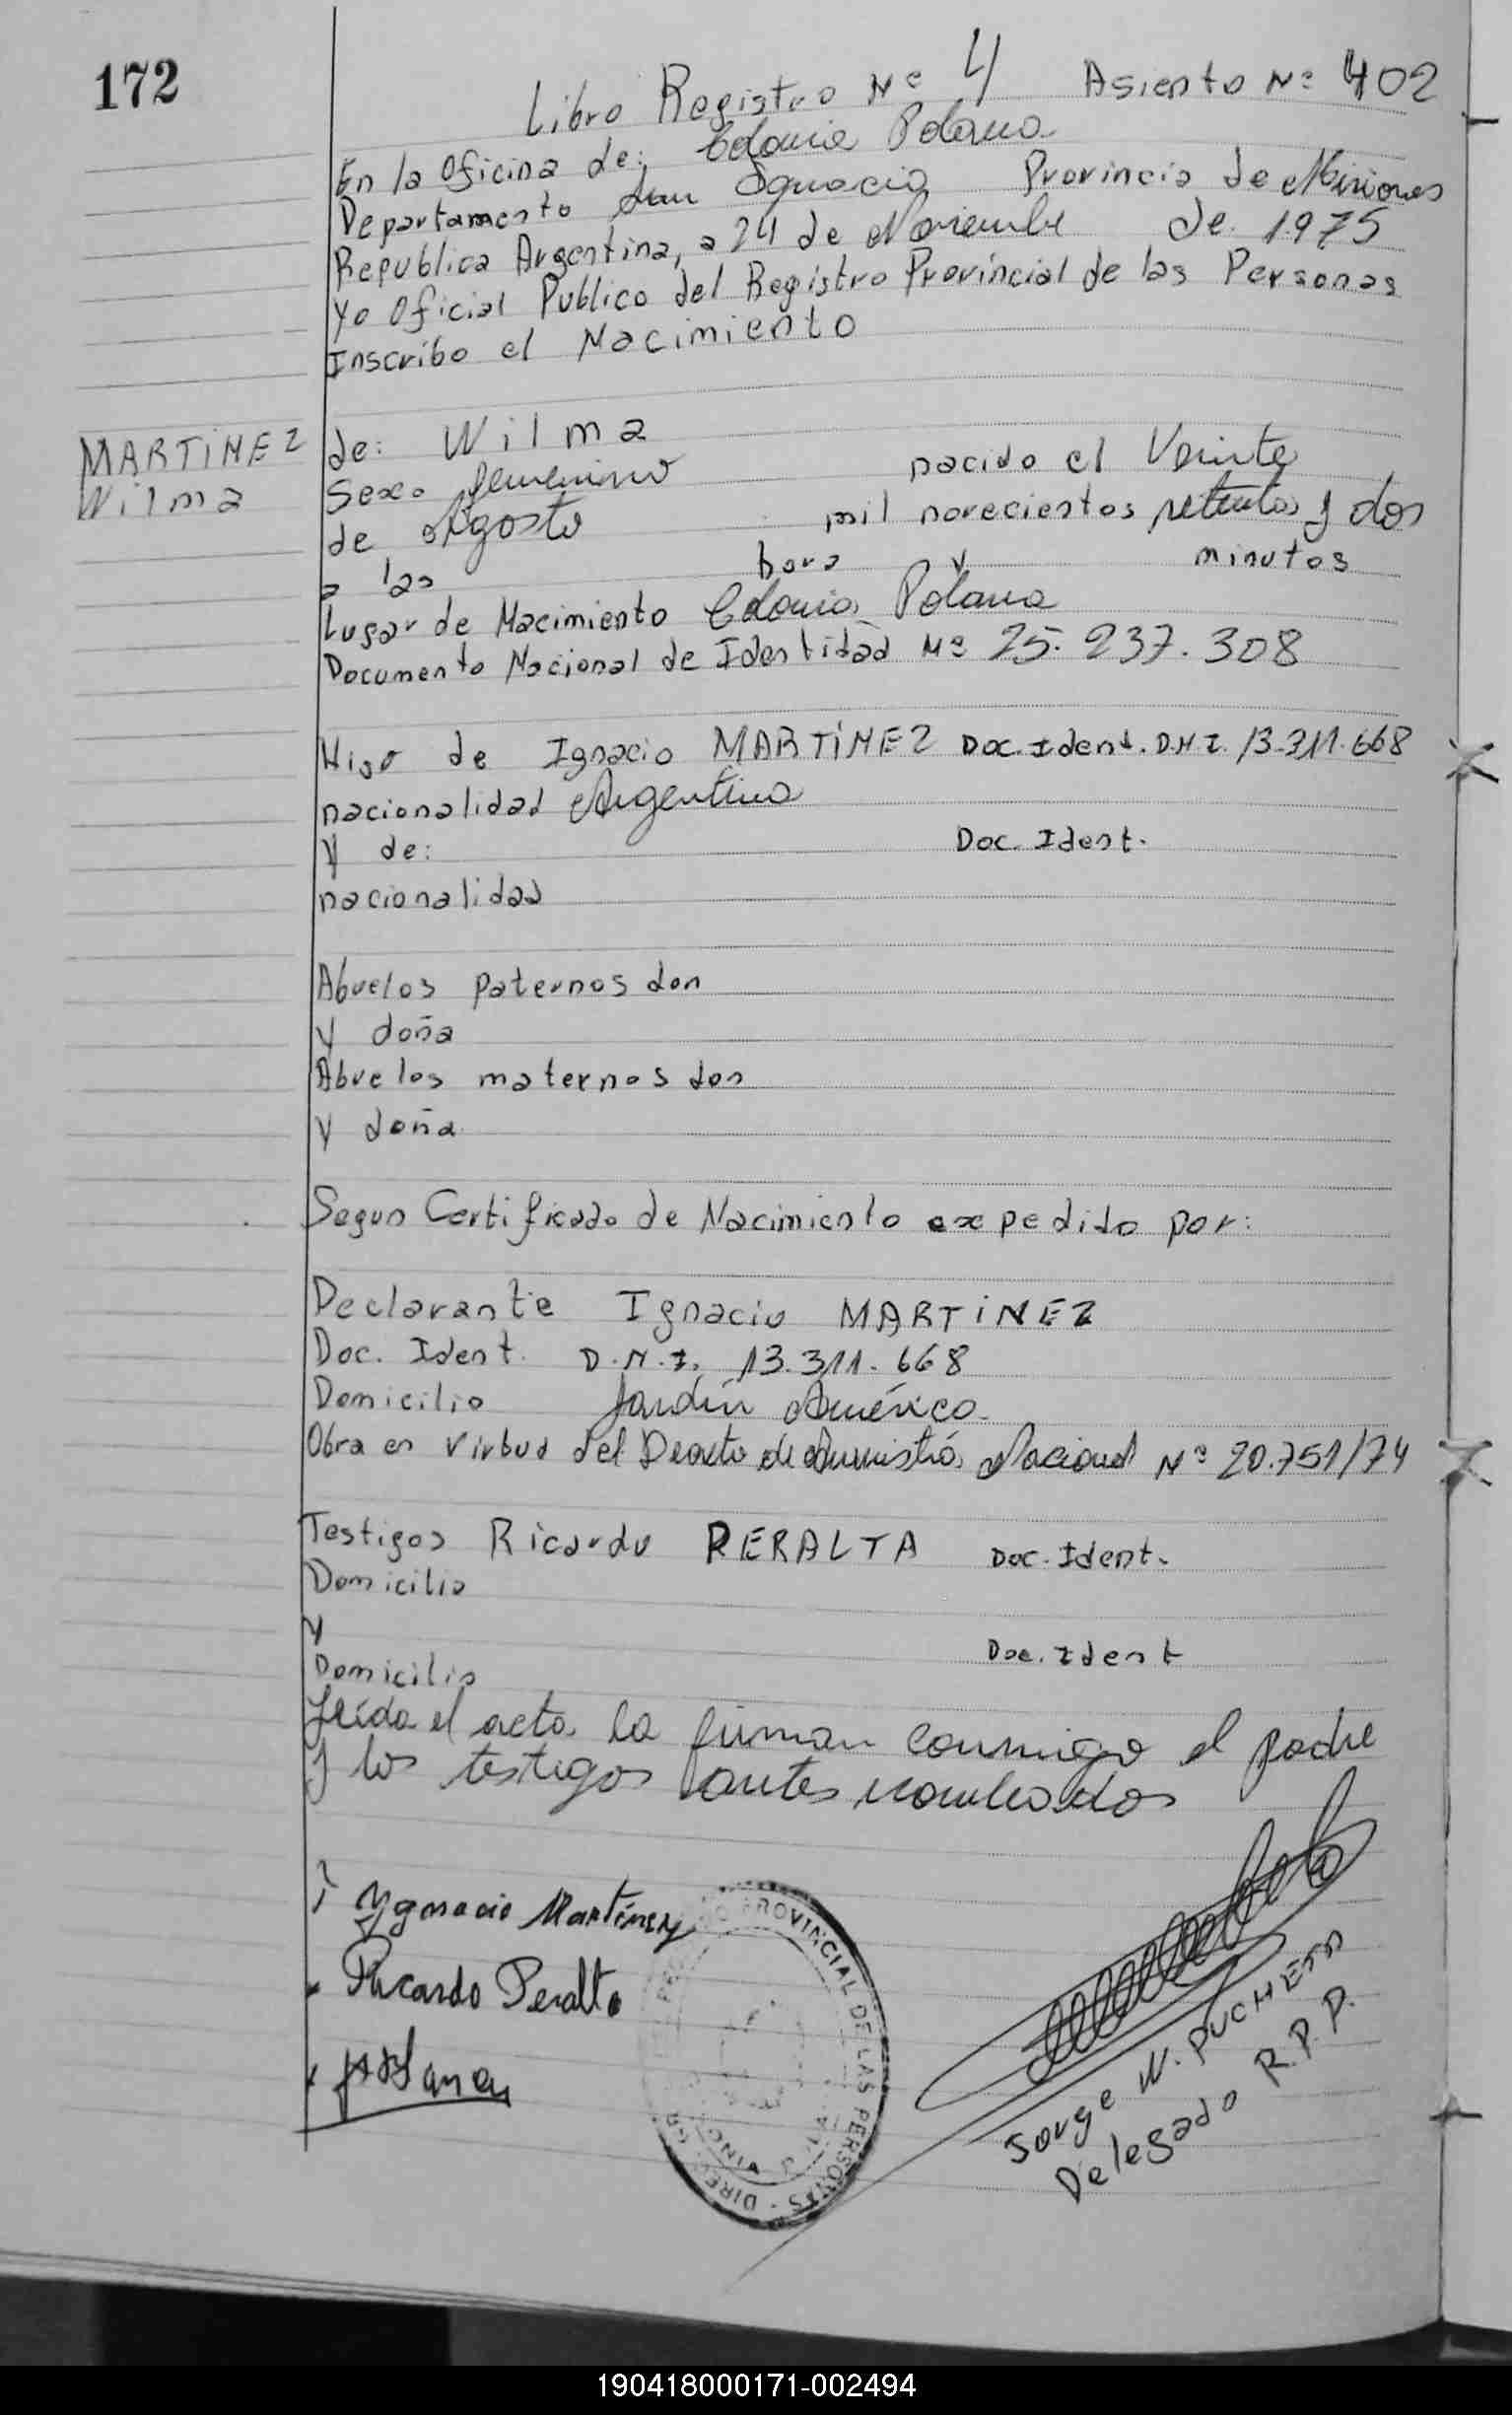 172
Libro Registro Nº 4 Asiento Nº 402
En la Oficina de: Colonia Polana
Departamento San Ignacio Provincia de Misiones
Republica Argentina, a 24 de Noviembre de 1975
Yo Oficial Publico del Registro Provincial de las Personas
Inscribo el Nacimiento
MARTíNEZ
Wilma
de: Wilma
Sexo femenino nacido el Veinte
de Agosto mil novecientos setenta y dos
a las hora y minutos
Lugar de Nacimiento Colonia Polana
Documento Nacional de Identidad Nº 25.237.308
Hijo de Ignacio MARTíNEZ Doc. Ident. D.N.I. 13.311.668
nacionalidad Argentina
Y de: Doc. Ident.
nacionalidad
Abuelos paternos don
Y doña
Abuelos maternos don
Y doña
Segun Certificado de Nacimiento expedido por:
Declarante Ignacio MARTíNEZ
Doc. Ident. D.N.I. 13.311.668
Domicilio Jardín América
Obra en virtud del Decreto de Amnistía Nacional Nº 20.751/74
Testigos Ricardo PERALTA Doc. Ident.
Domicilio
Y Doc. Ident
Domicilio
Leída el acta la firman conmigo el padre
y los testigos antes nombrados
Ygnacio Martínez
Ricardo Peralta
PROVINCIAL DE LAS PERSONAS - DIRE
Jorge N. PUCHETA
Delegado R.P.P.
190418000171-002494